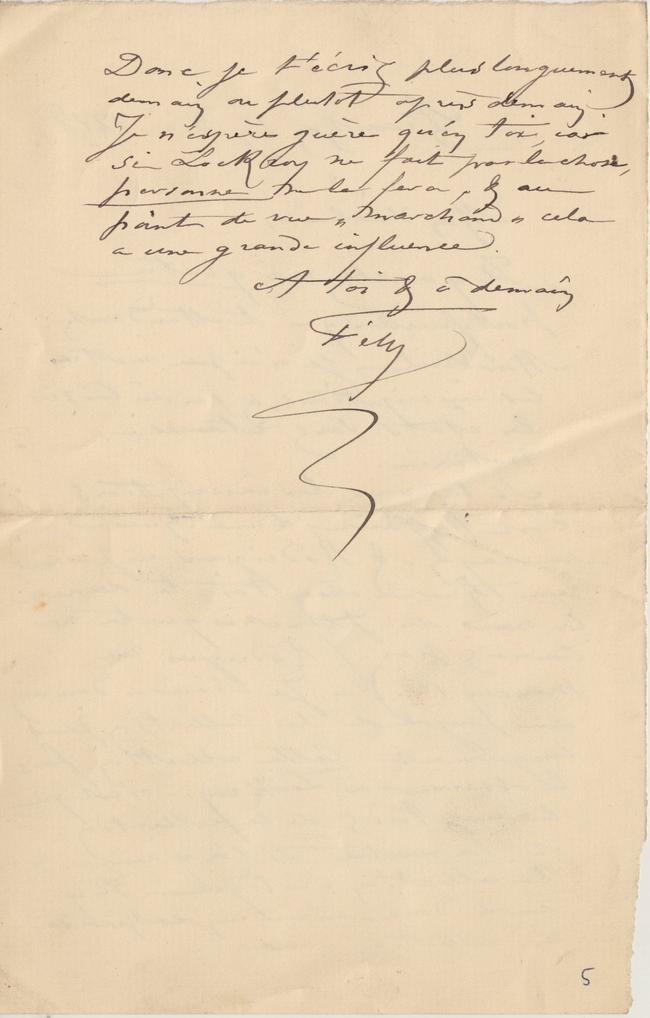 Donc je t'écris plus longuement
demain ou plutot après demain
Je n'espère guère qu'en toi, car
si Lockroy ne fait pas la chose,
personne ne la fera, & au
point de vue „ marchand „ cela
a une grande influence.
A toi & à demain
Fély
5